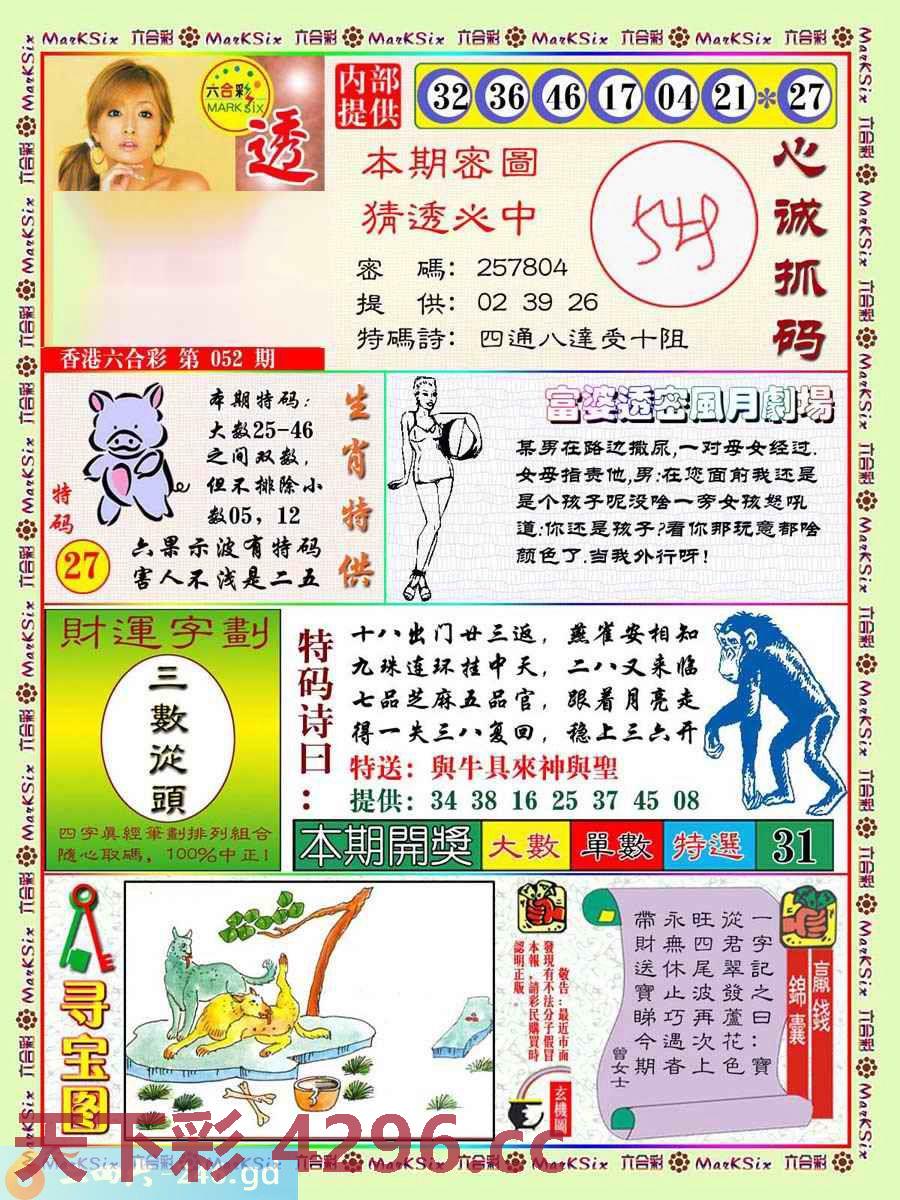 MarKSix 六合彩 MarKSix 六合彩 MarKSix 六合彩 MarKSix 六合彩 MarKSix 六合彩
六合彩
MARK SIX
透
内部
提供
32 36 46 17 04 21 * 27
本期密圖
猜透必中
密 碼: 257804
提 供: 02 39 26
特碼詩: 四通八達受十阻
549
心诚抓码
香港六合彩 第 052 期
本期特码:
大数25-46
之间双数,
但不排除小
数05, 12
六果示波有特码
害人不浅是二五
特码
27
生肖特供
富婆透密風月劇場
某男在路边撒尿,一对母女经过.
女母指责他,男:在您面前我还是
是个孩子呢没啥一旁女孩怒吼
道:你还是孩子?看你那玩意都啥
颜色了.当我外行呀!
財運字劃
三數從頭
四字眞經筆劃排列組合
隨心取碼, 100%中正!
特码诗曰:
十八出门廿三返, 燕雀安相知
九珠连环挂中天, 二八又来临
七品芝麻五品官, 跟着月亮走
得一失三八复回, 稳上三六开
特送: 與牛具來神與聖
提供: 34 38 16 25 37 45 08
本期開獎 大數 單數 特選 31
寻宝图
敬告:最近市面
發現有不法分子假冒
本報,請彩民購買時
認明正版。
玄機圖
一字記之曰:寶
從君翠發蘆花色
旺四尾波再次上
永無休止巧遇春
帶財送寶睇今期
曾女士
贏錢
錦囊
天下彩 4296.cc
246.gd
MarKSix 六合彩 MarKSix 六合彩 MarKSix 六合彩 MarKSix 六合彩 MarKSix 六合彩